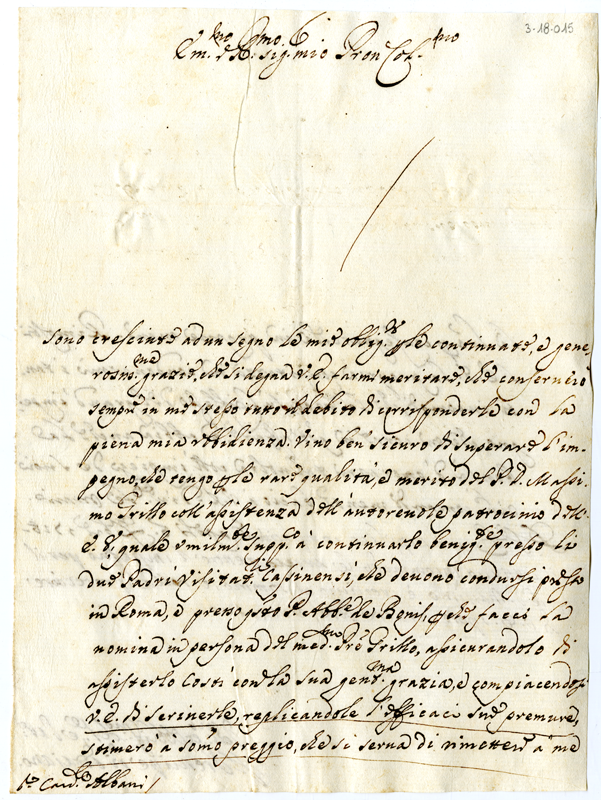 3-18-015
Em.mo e R.mo Sig. mio Pron Col.mo
Sono cresciute ad un segno le mie oblig.ni p le continuate, e gene
rosis.me grazie, che si degna V. E. farmi meritare, che conserverò
sempre in me stesso tutto il debito di corrisponderle con la
piena mia ubidienza. Vivo ben sicuro di superare l'im-
pegno, che tengo p le rare qualità, e merito del P. D. Massi-
mo Grillo coll'assistenza dell'autorevole patrocinio dell'
E. V., quale umilm.te supp.co à continuarlo benig.te presso li
due Padri Visitat.li Cassinensi, che devono condursi presto
in Roma, e presso P. Abb.e de Bonis, p che facci la
nomina in persona del med.mo Pre Grillo, assicurandolo di
assisterlo costì con la sua gent.ma grazia, e compiacendosi
V. E. di scriverle, replicandole l'efficaci sue premure,
stimerò à somo preggio, che si serva di rimetter à me
Card. Albani